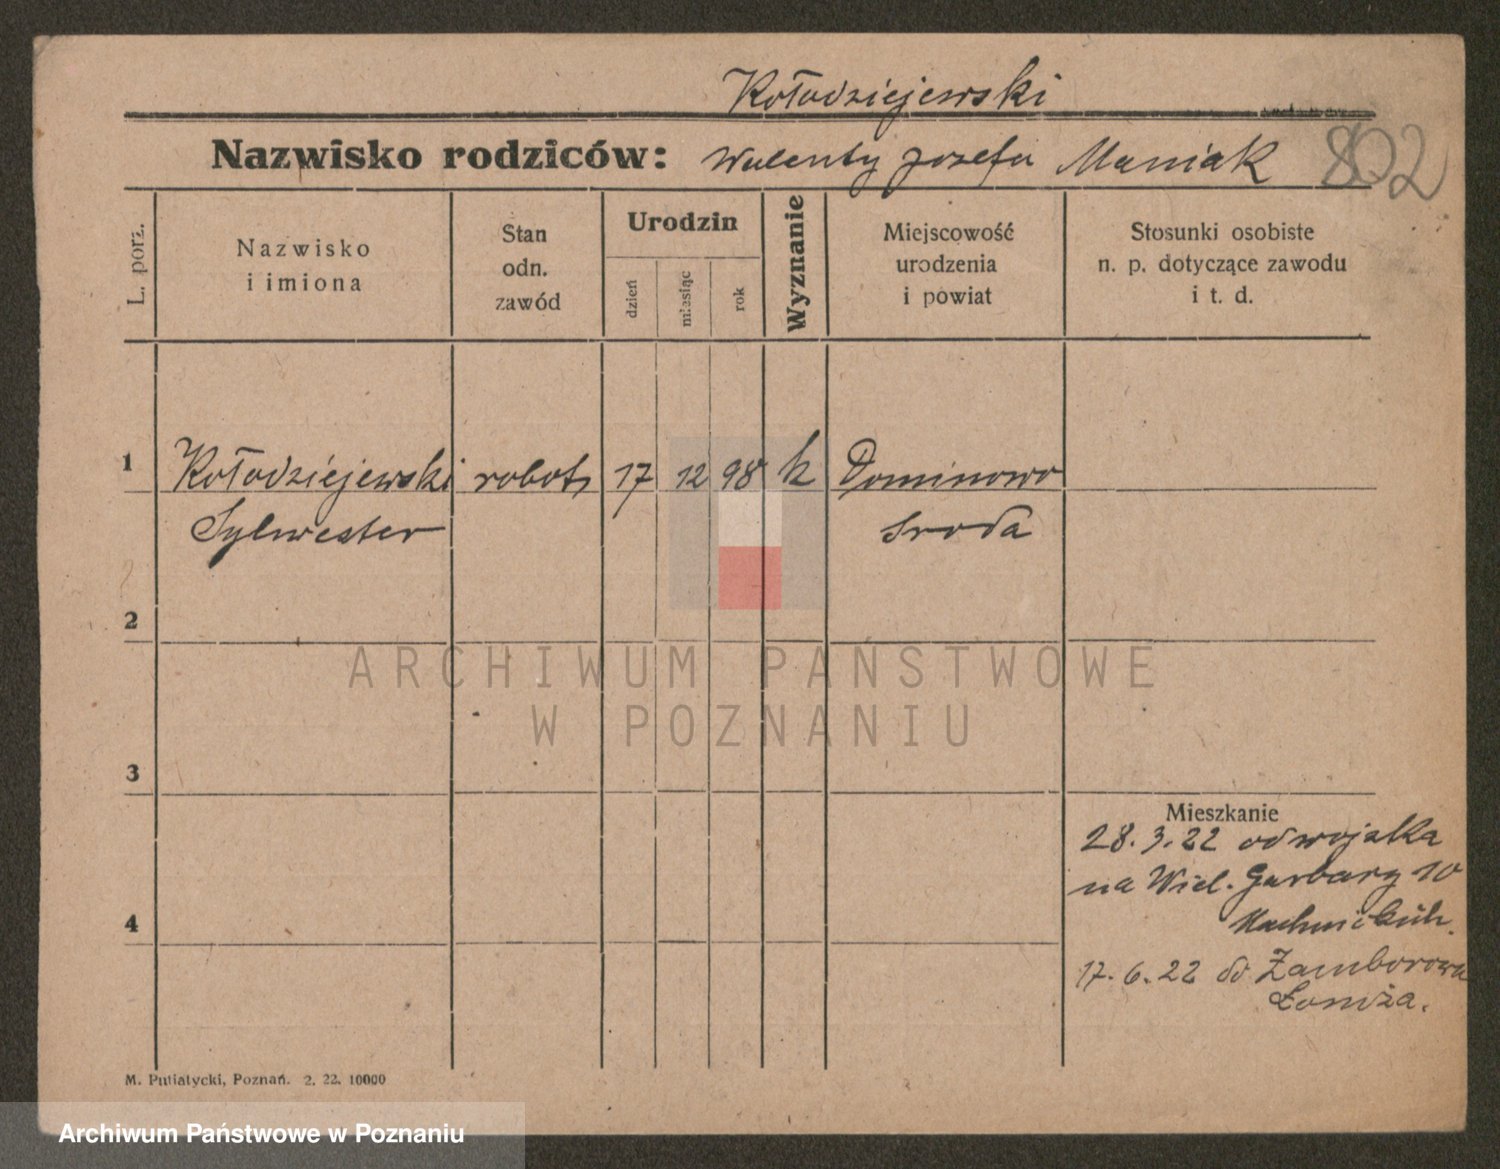 Kołodziejewski
Nazwisko rodziców: Walenty Józefa Maniak 802
L. porz.
Nazwisko
i imiona
Stan
odn.
zawód
Urodzin
dzień
miesiąc
rok
Wyznanie
Miejscowość
urodzenia
i powiat
Stosunki osobiste
n. p. dotyczące zawodu
i t. d.
1 Kołodziejewski robotn 17 12 98 k Dominowo
Sylwester Sroda
2
ARCHIWUM PAŃSTWOWE
W POZNANIU
3
Mieszkanie
28.3.22 od wojska
na Wiel. Garbary 10
4
17.6.22 do Zamborowa
Łomża.
M. Putiatycki, Poznań. 2. 22. 10000
Archiwum Państwowe w Poznaniu